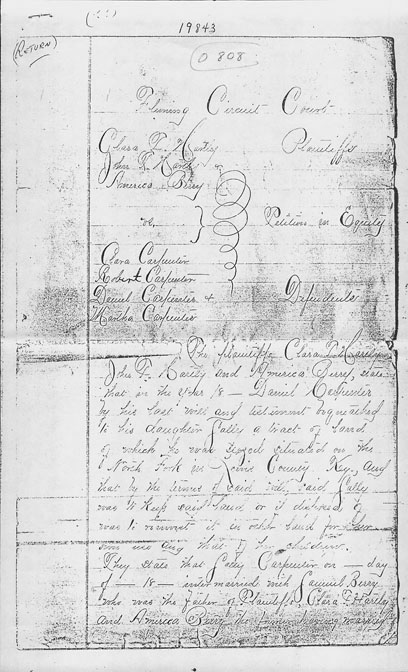 19843
(RETURN)
0 808
Fleming Circuit Court
Clara F. Hartley Plaintiffs
John F. Hartley
America Berry
vs. Petition in Equity
Clara Carpenter
Robert Carpenter
Daniel Carpenter & Defendants
Martha Carpenter
The plaintiffs Clara F. Hartley
John F. Hartly and America Berry, state
that in the year 18 — Daniel Carpenter
by his last will and testament bequeathed
to his daughter Sally a tract of land
of which he was situated on the
North Fork in Lewis County Ky., and
that by the terms of said will said Sally
was to keep said land or if disposed of
was to reinvest it in other land for her
own use and that of her children.
They state that Sally Carpenter on — day
of — 18 — intermarried with Samuel Berry
who was the Father of Plaintiffs, Clara F. Hartley
and America Berry the former having married